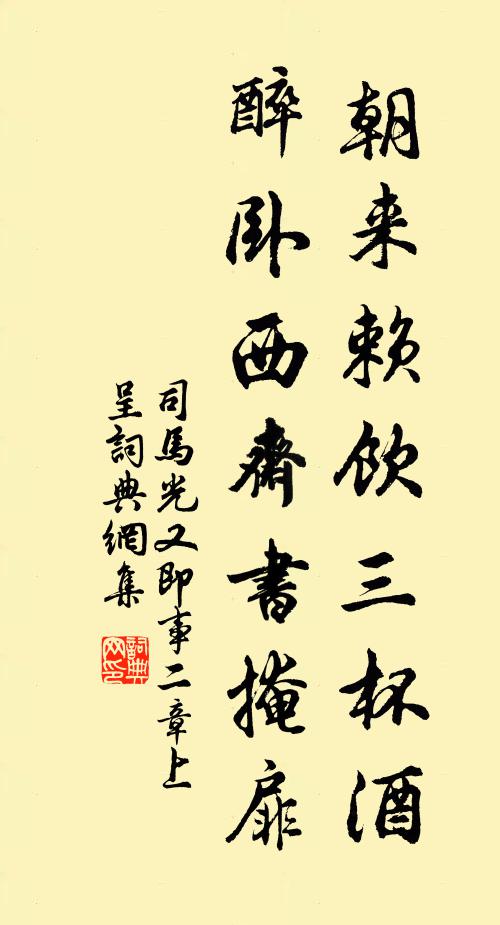 朝来赖饮三杯酒
醉卧西齋書掩扉
司馬光又即事二章上
呈詞典網集
詞典网印